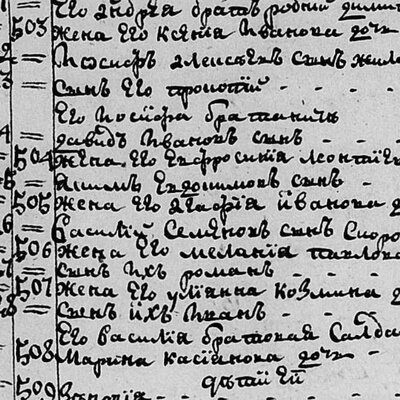 Его Андрея братъ родний дими
503 жена Его Ксенія Иванова доч
Іосифъ Алексѣевъ сынъ
3 = сынъ Его прокопій
Его Иосифа братанич
4 = давидъ Ивановъ сынъ
504 жена Его Евфросинія леонтіе
= Якимъ Евдокимовъ сынъ
505 жена Его Агафія Иванова
6 = Василій Семеновъ сынъ Скоро
506 жена Его меланія павлова
= сынъ ихъ романъ
507 жена Его уліянна Козмина д
= сынъ ихъ Иванъ
Его василія братовая Салда
508 Марина касіанова доч
дѣтии Ей
509